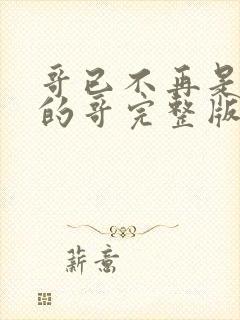 哥已不再是
的哥完整版
薪意